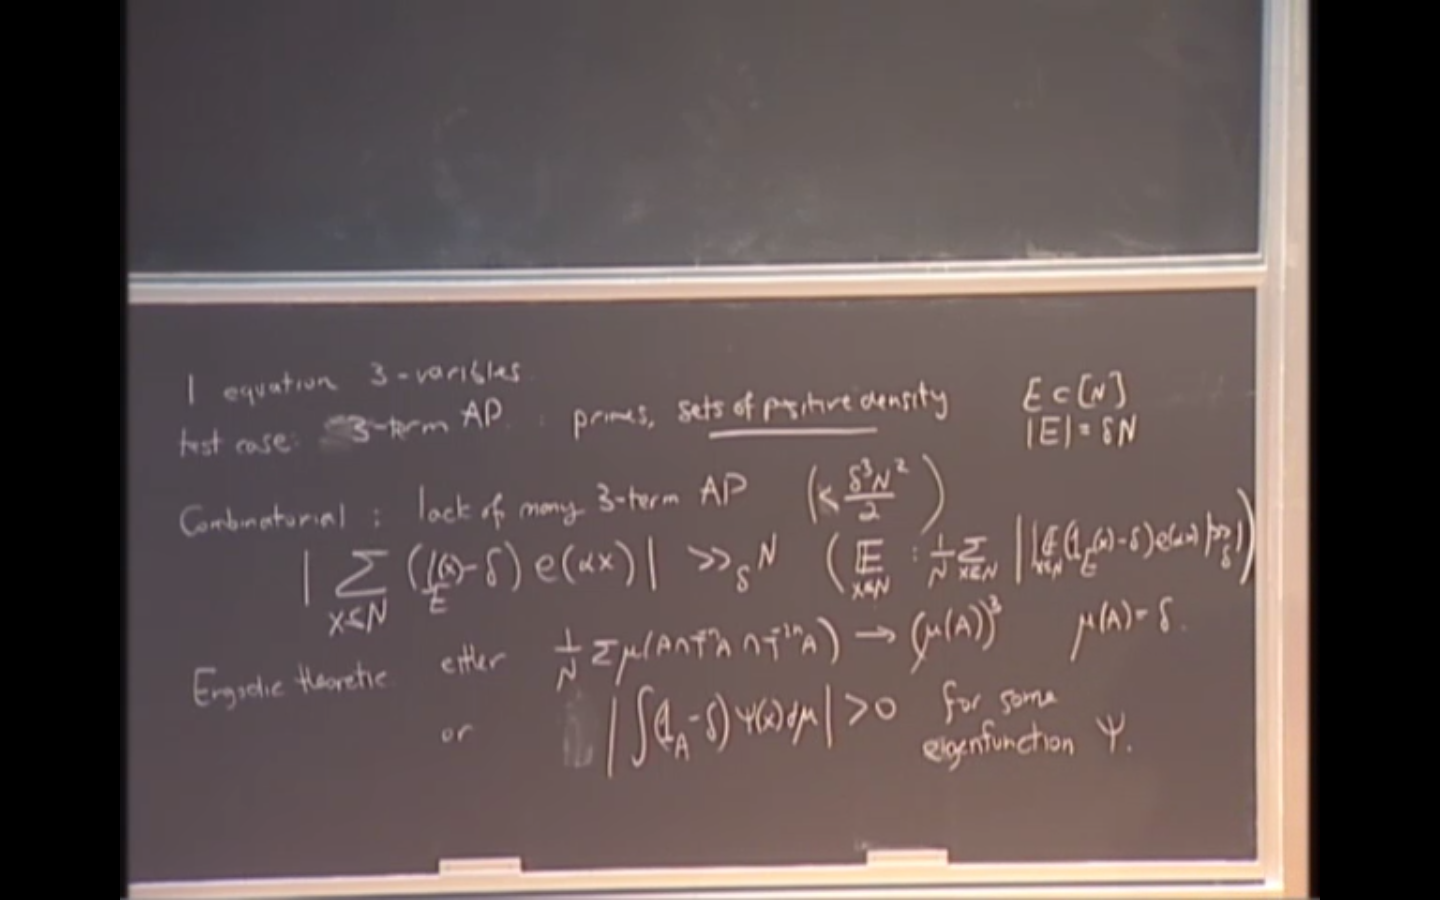 1 equation 3-variables
test case: 3-term AP : primes, sets of positive density E ⊂ [N]
|E| = δN
Combinatorial : lack of many 3-term AP (< δ³N²/2)
|∑_{x≤N} (1_E(x) - δ) e(αx)| >>_δ N (𝔼_{x≤N} : 1/N ∑_{x≤N} | |𝔼_{x≤N} (1_E(x) - δ) e(αx)| >>_δ 1)
Ergodic theoretic either 1/N ∑ μ(A ∩ T^{-n}A ∩ T^{-2n}A) → (μ(A))³ μ(A) = δ.
or |∫(1_A - δ) Ψ(x) dμ| > 0 for some
eigenfunction Ψ.